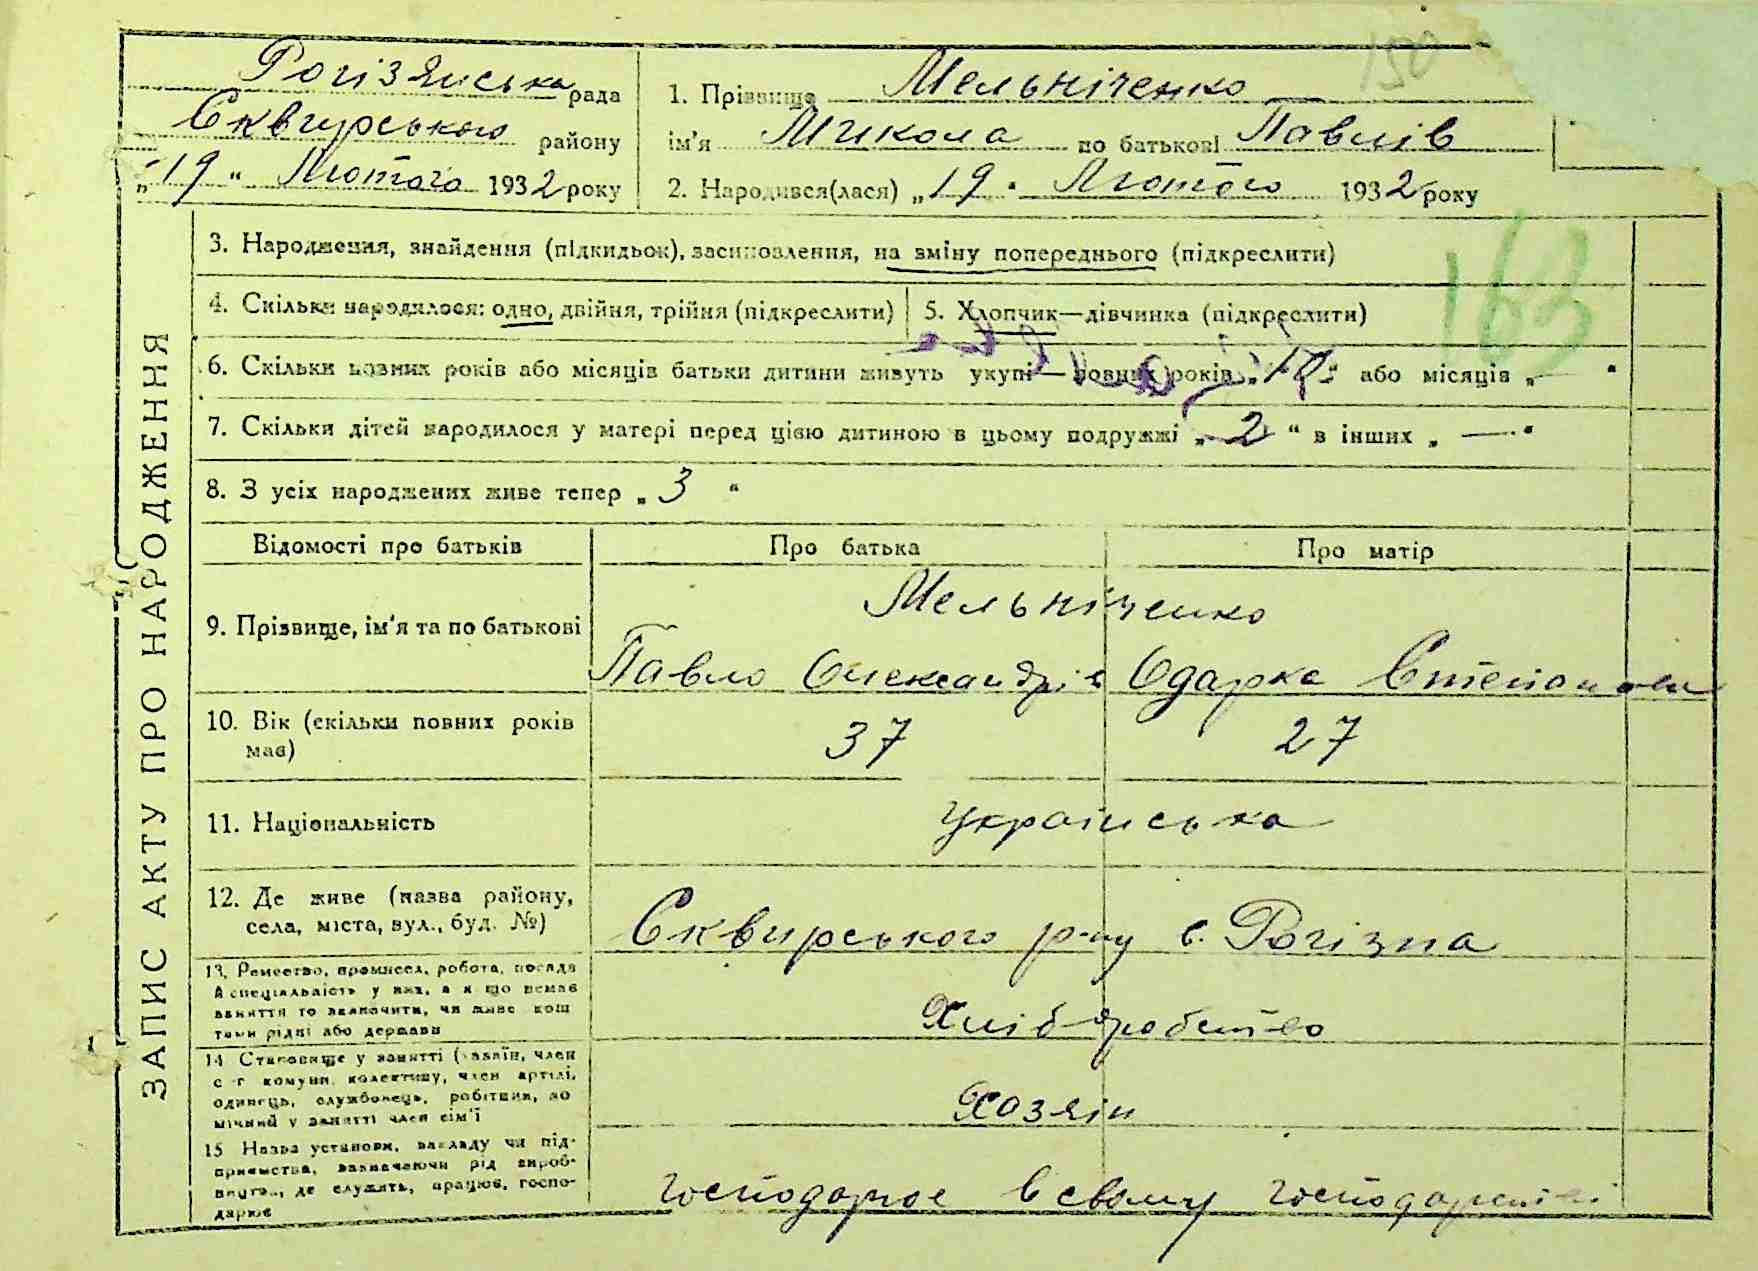 150
Рогізянська рада
Сквирського району
„19“ Лютого 1932 року
1. Прізвище Мельніченко
ім'я Микола по батькові Павлів
2. Народився(лася) „19“ Лютого 1932 року
163
ЗАПИС АКТУ ПРО НАРОДЖЕННЯ
3. Народження, знайдення (підкидьок), засиновлення, на зміну попереднього (підкреслити)
4. Скільки народилося: одно, двійня, трійня (підкреслити)
5. Хлопчик—дівчинка (підкреслити)
6. Скільки повних років або місяців батьки дитини живуть укупі— повних років „10“ або місяців „—“
7. Скільки дітей народилося у матері перед цією дитиною в цьому подружжі „2“ в інших „—“
8. З усіх народжених живе тепер „3“
Відомості про батьків Про батька Про матір
9. Прізвище, ім'я та по батькові
Мельніченко
Павло Олександрів Одарка Степанова
10. Вік (скільки повних років має)
37 27
11. Національність
українська
12. Де живе (назва району,
села, міста, вул., буд. №)
Сквирського р-ну с. Рогізна
13. Ремество, промисел, робота, посада
й спеціальність у них, а якщо немає
заняття то зазначити, чи живе кош
тами рідні або держави
Хліборобство
14 Становище у занятті (хазяїн, член
с-г комуни, колективу, член артілі,
одинець, службовець, робітник, по
мічний у занятті член сім'ї
Хозяін
15 Назва установи, закладу чи під-
приємства, зазначаючи рід вироб-
ництва, де служить, працює, госпо-
дарює
господарює в своему господарстві